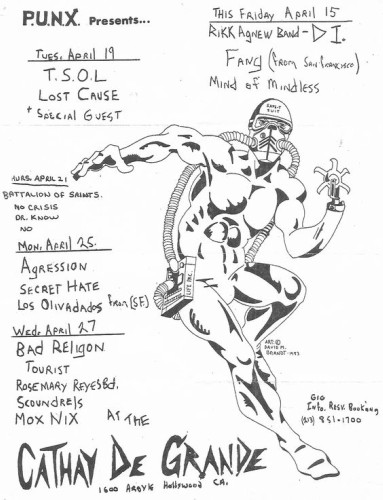 P.U.N.X. Presents...
Tues. April 19
T.S.O.L
Lost Cause
+ Special Guest
This Friday April 15
Rikk Agnew Band - D I.
Fang (from San Francisco)
Mind of Mindless
Thurs. April 21
Battalion of Saints.
No Crisis
Dr. Know
No
Mon. April 25.
Agression
Secret Hate
Los Olivadados from (SF)
Wed. April 27
Bad Religon
Tourist
Rosemary Reyes Bd.
Scoundrels
Mox Nix
At The
Cathay De Grande
1600 Argyle Hollywood CA.
Life Pac.
Art ©
David M.
Brandt
Gig
Info. Resv. Booking
(213) 851-1700